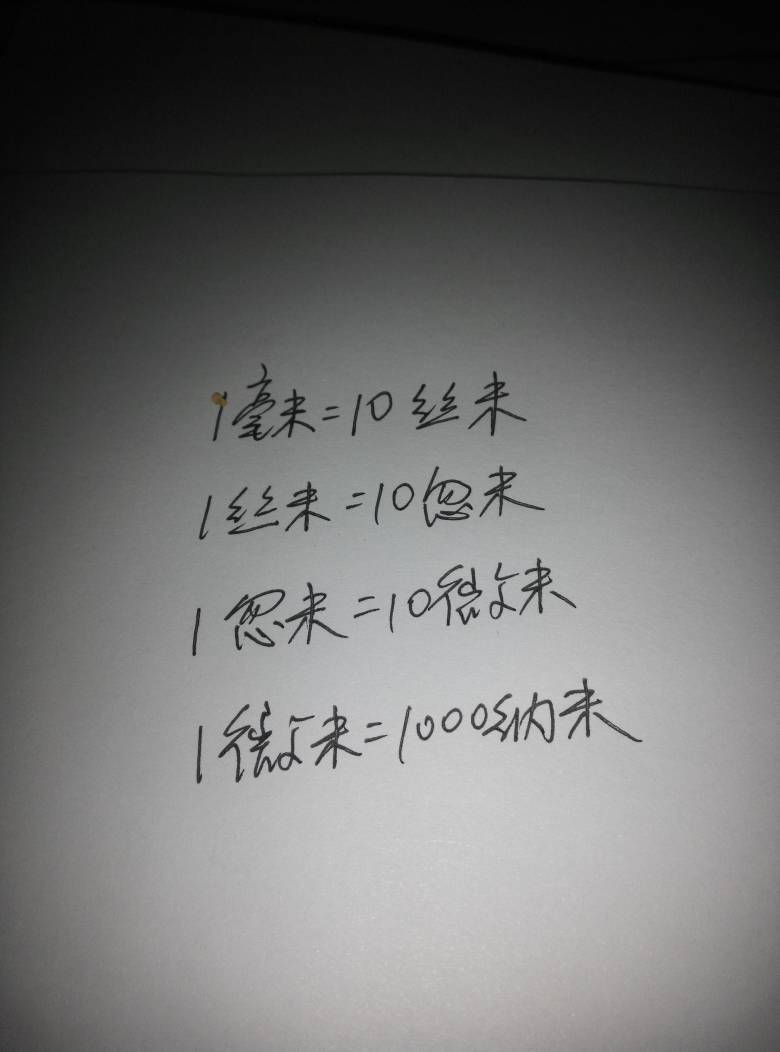 1毫米=10丝米
1丝米=10忽米
1忽米=10微米
1微米=1000纳米